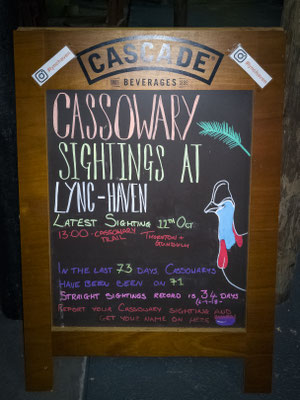 CASCADE
BEVERAGES
CASSOWARY
SIGHTINGS AT
LYNC-HAVEN
LATEST SIGHTING 11TH OCT
13:00 - CASSOWARY
TRAIL
THORNTON +
IN THE LAST 73 DAYS CASSOWARYS
HAVE BEEN BEEN ON 71
STRAIGHT SIGHTINGS RECORD IS 34 DAYS
REPORT YOUR CASSOWARY SIGHTING AND
GET YOUR NAME ON HERE